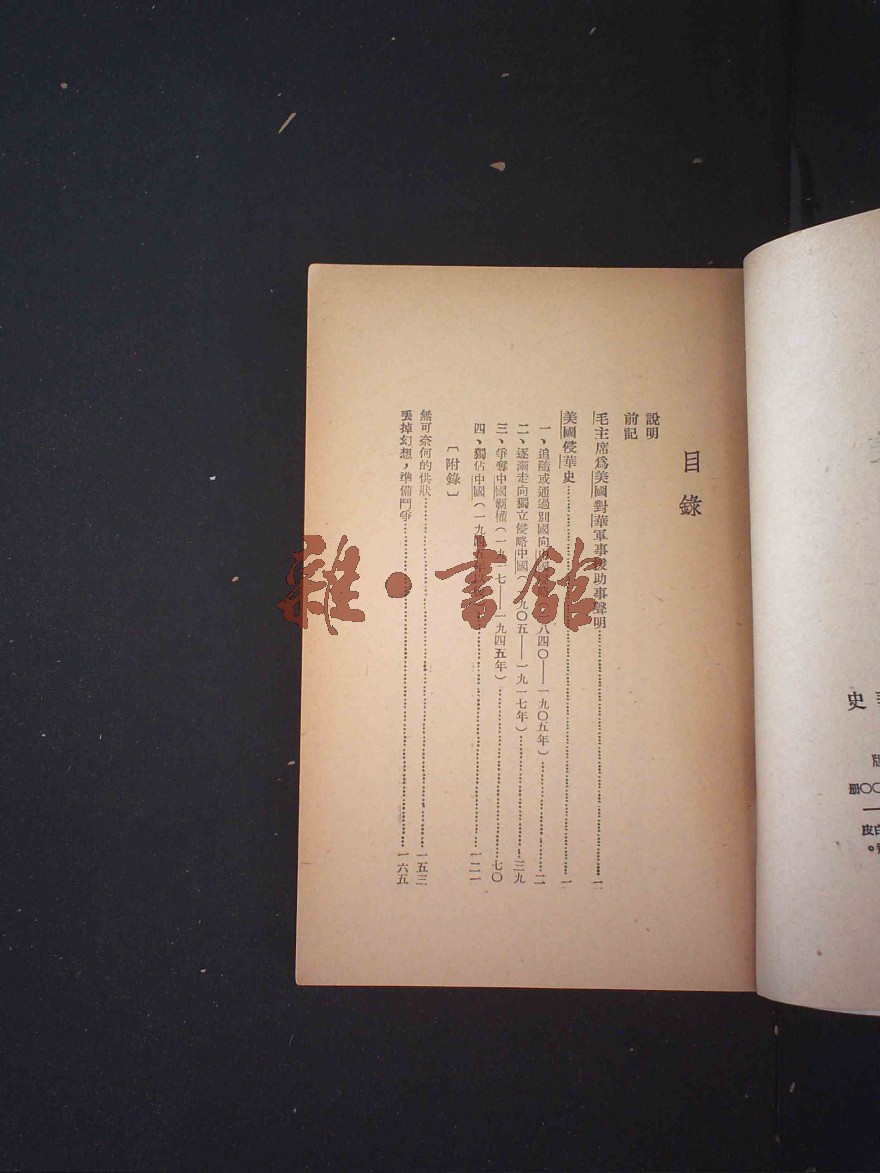 目錄
說明
前記
毛主席爲美國對華軍事援助事聲明……一
美國侵華史……一
一、追隨或通過別國向中國 八四〇——一九〇五年)……二
二、逐漸走向獨立侵略中國( 九〇五——一九一七年)……三九
三、爭奪中國霸權(一九一七——一九四五年)……七〇
四、獨佔中國(一九四五年以 ……一二一
〔附錄〕
無可奈何的供狀……一五三
丟掉幻想,準備鬥爭……一六五
雜·書館
史
版
〇〇册
皮